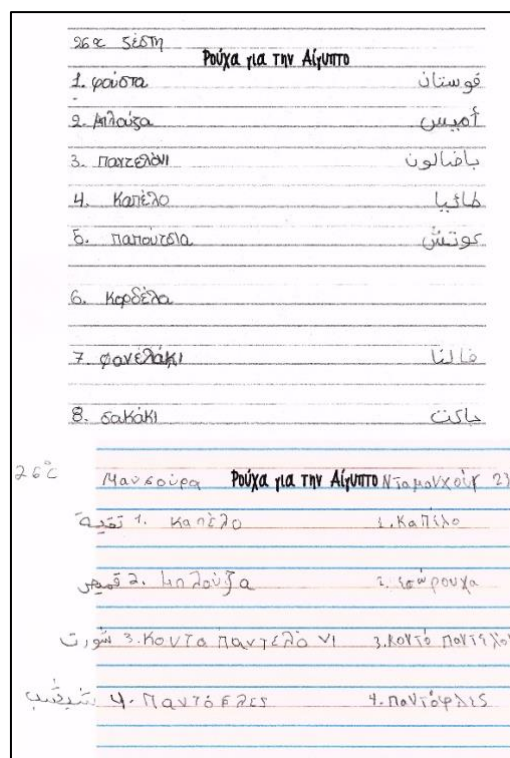 26°c ζέστη
Ρούχα για την Αίγυπτο
1. φούστα فوستان
2. Μπλούζα أميس
3. παντελόνι باضالون
4. Καπέλο طائيا
5. παπούτσια كوتش
6. Κορδέλα
7. φανελάκι فالنا
8. σακάκι جاكت
26°c Μανσούρα Ρούχα για την Αίγυπτο
1. καπέλο 1. καπέλο
قميص 2. μπλούζα 2. εσώρουχα
شورت 3. κοντο παντελό νι 3. κοντό παντελόν
4. παντόφλες 4. παντόφλες